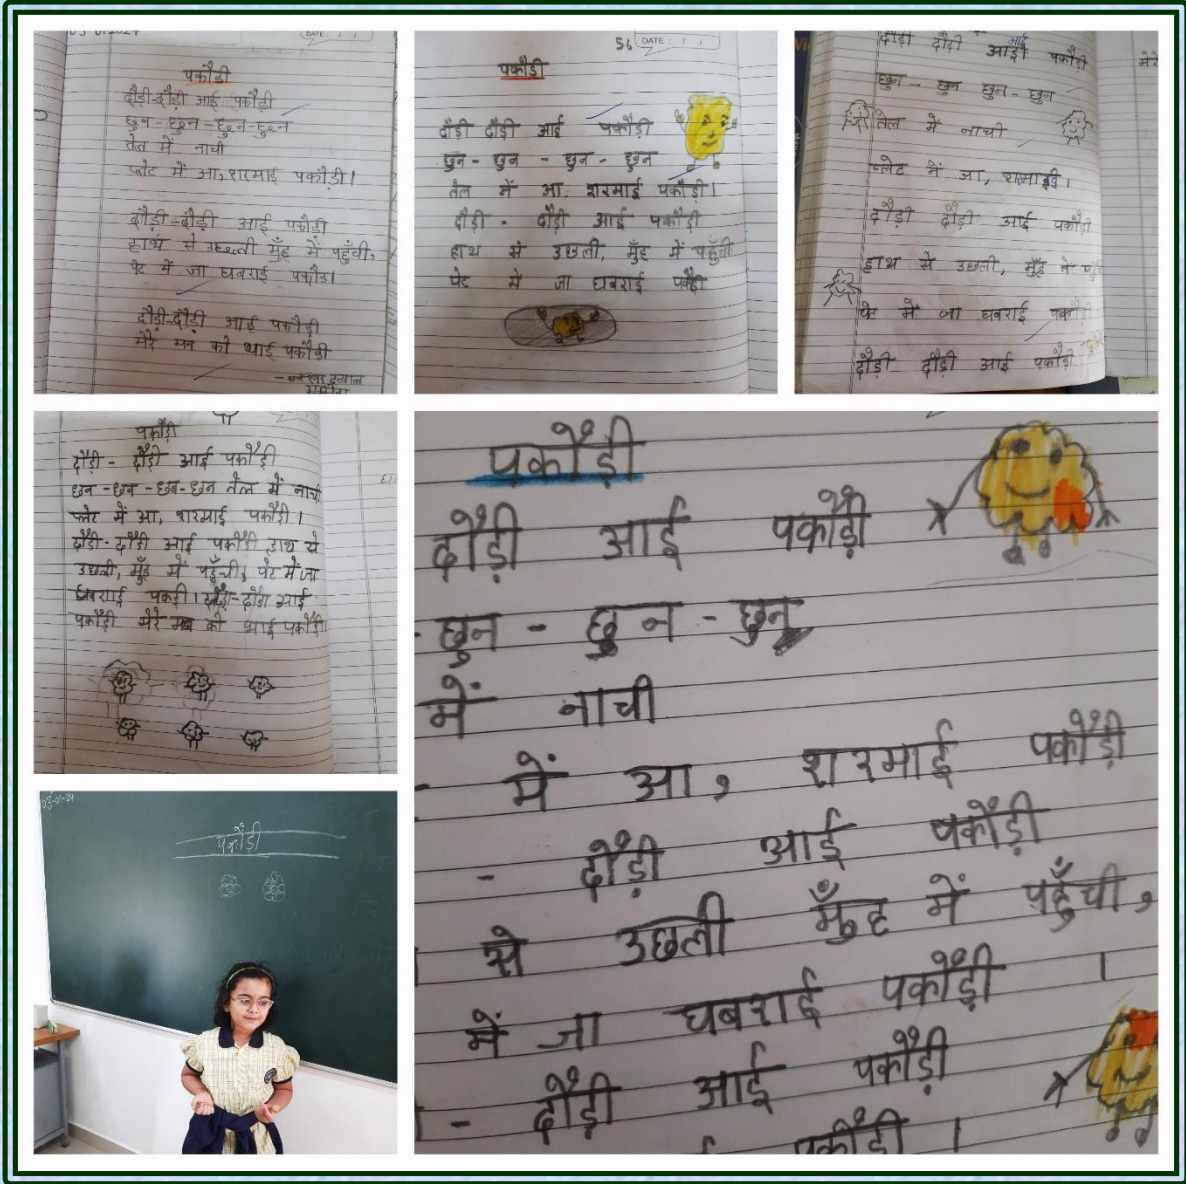 03-01-2024
DATE
पकौड़ी
दौड़ी-दौड़ी आई पकौड़ी
छुन-छुन-छुन-छुन
तेल में नाची
प्लेट में आ, शरमाई पकौड़ी।
दौड़ी-दौड़ी आई पकौड़ी
हाथ से उछली मुँह में पहुँची,
पेट में जा घबराई पकौड़।
दौड़ी-दौड़ी आई पकौड़ी
मेरे मन को भाई पकौड़ी
56
DATE
पकौड़ी
दौड़ी दौड़ी आई पकौड़ी
छुन- छुन - छुन- छुन
तेल में आ, शरमाई पकौड़ी।
दौड़ी - दौड़ी आई पकौड़ी
हाथ से उछली, मुँह में पहुँची
पेट में जा घबराई
दौड़ी दौड़ी आई पकौड़ी
मेरे
छुन - छुन छुन - छुन
तेल में नाची
प्लेट में आ,
दौड़ी दौड़ी आई पकौड़ी
हाथ से उछली, मुँह में
पेट में जा घबराई पकौड़ी
दौड़ी दौड़ी आई पकौड़ी
पकौड़ी
दौड़ी - दौड़ी आई पकौड़ी
छन -छन -छन-छन तेल में नाची
प्लेट में आ, शरमाई पकौड़ी।
दौड़ी-दौड़ी आई पकौड़ी हाथ से
उछली, मुँह में पहुँची, पेट में जा
घबराई पकड़ी। दौड़ी-दौड़ी आई
पकौड़ी मेरे मन को भाई पकौड़ी।
पकौड़ी
दौड़ी आई पकौड़ी
- छुन - छुन - छुन
में नाची
- में आ, शरमाई पकौड़ी
- दौड़ी आई पकौड़ी
से उछली मुँह में पहुँची,
में जा घबराई पकौड़ी ।
- दौड़ी आई पकौड़ी
पकौड़ी ।
03-01-24
पकौड़ी